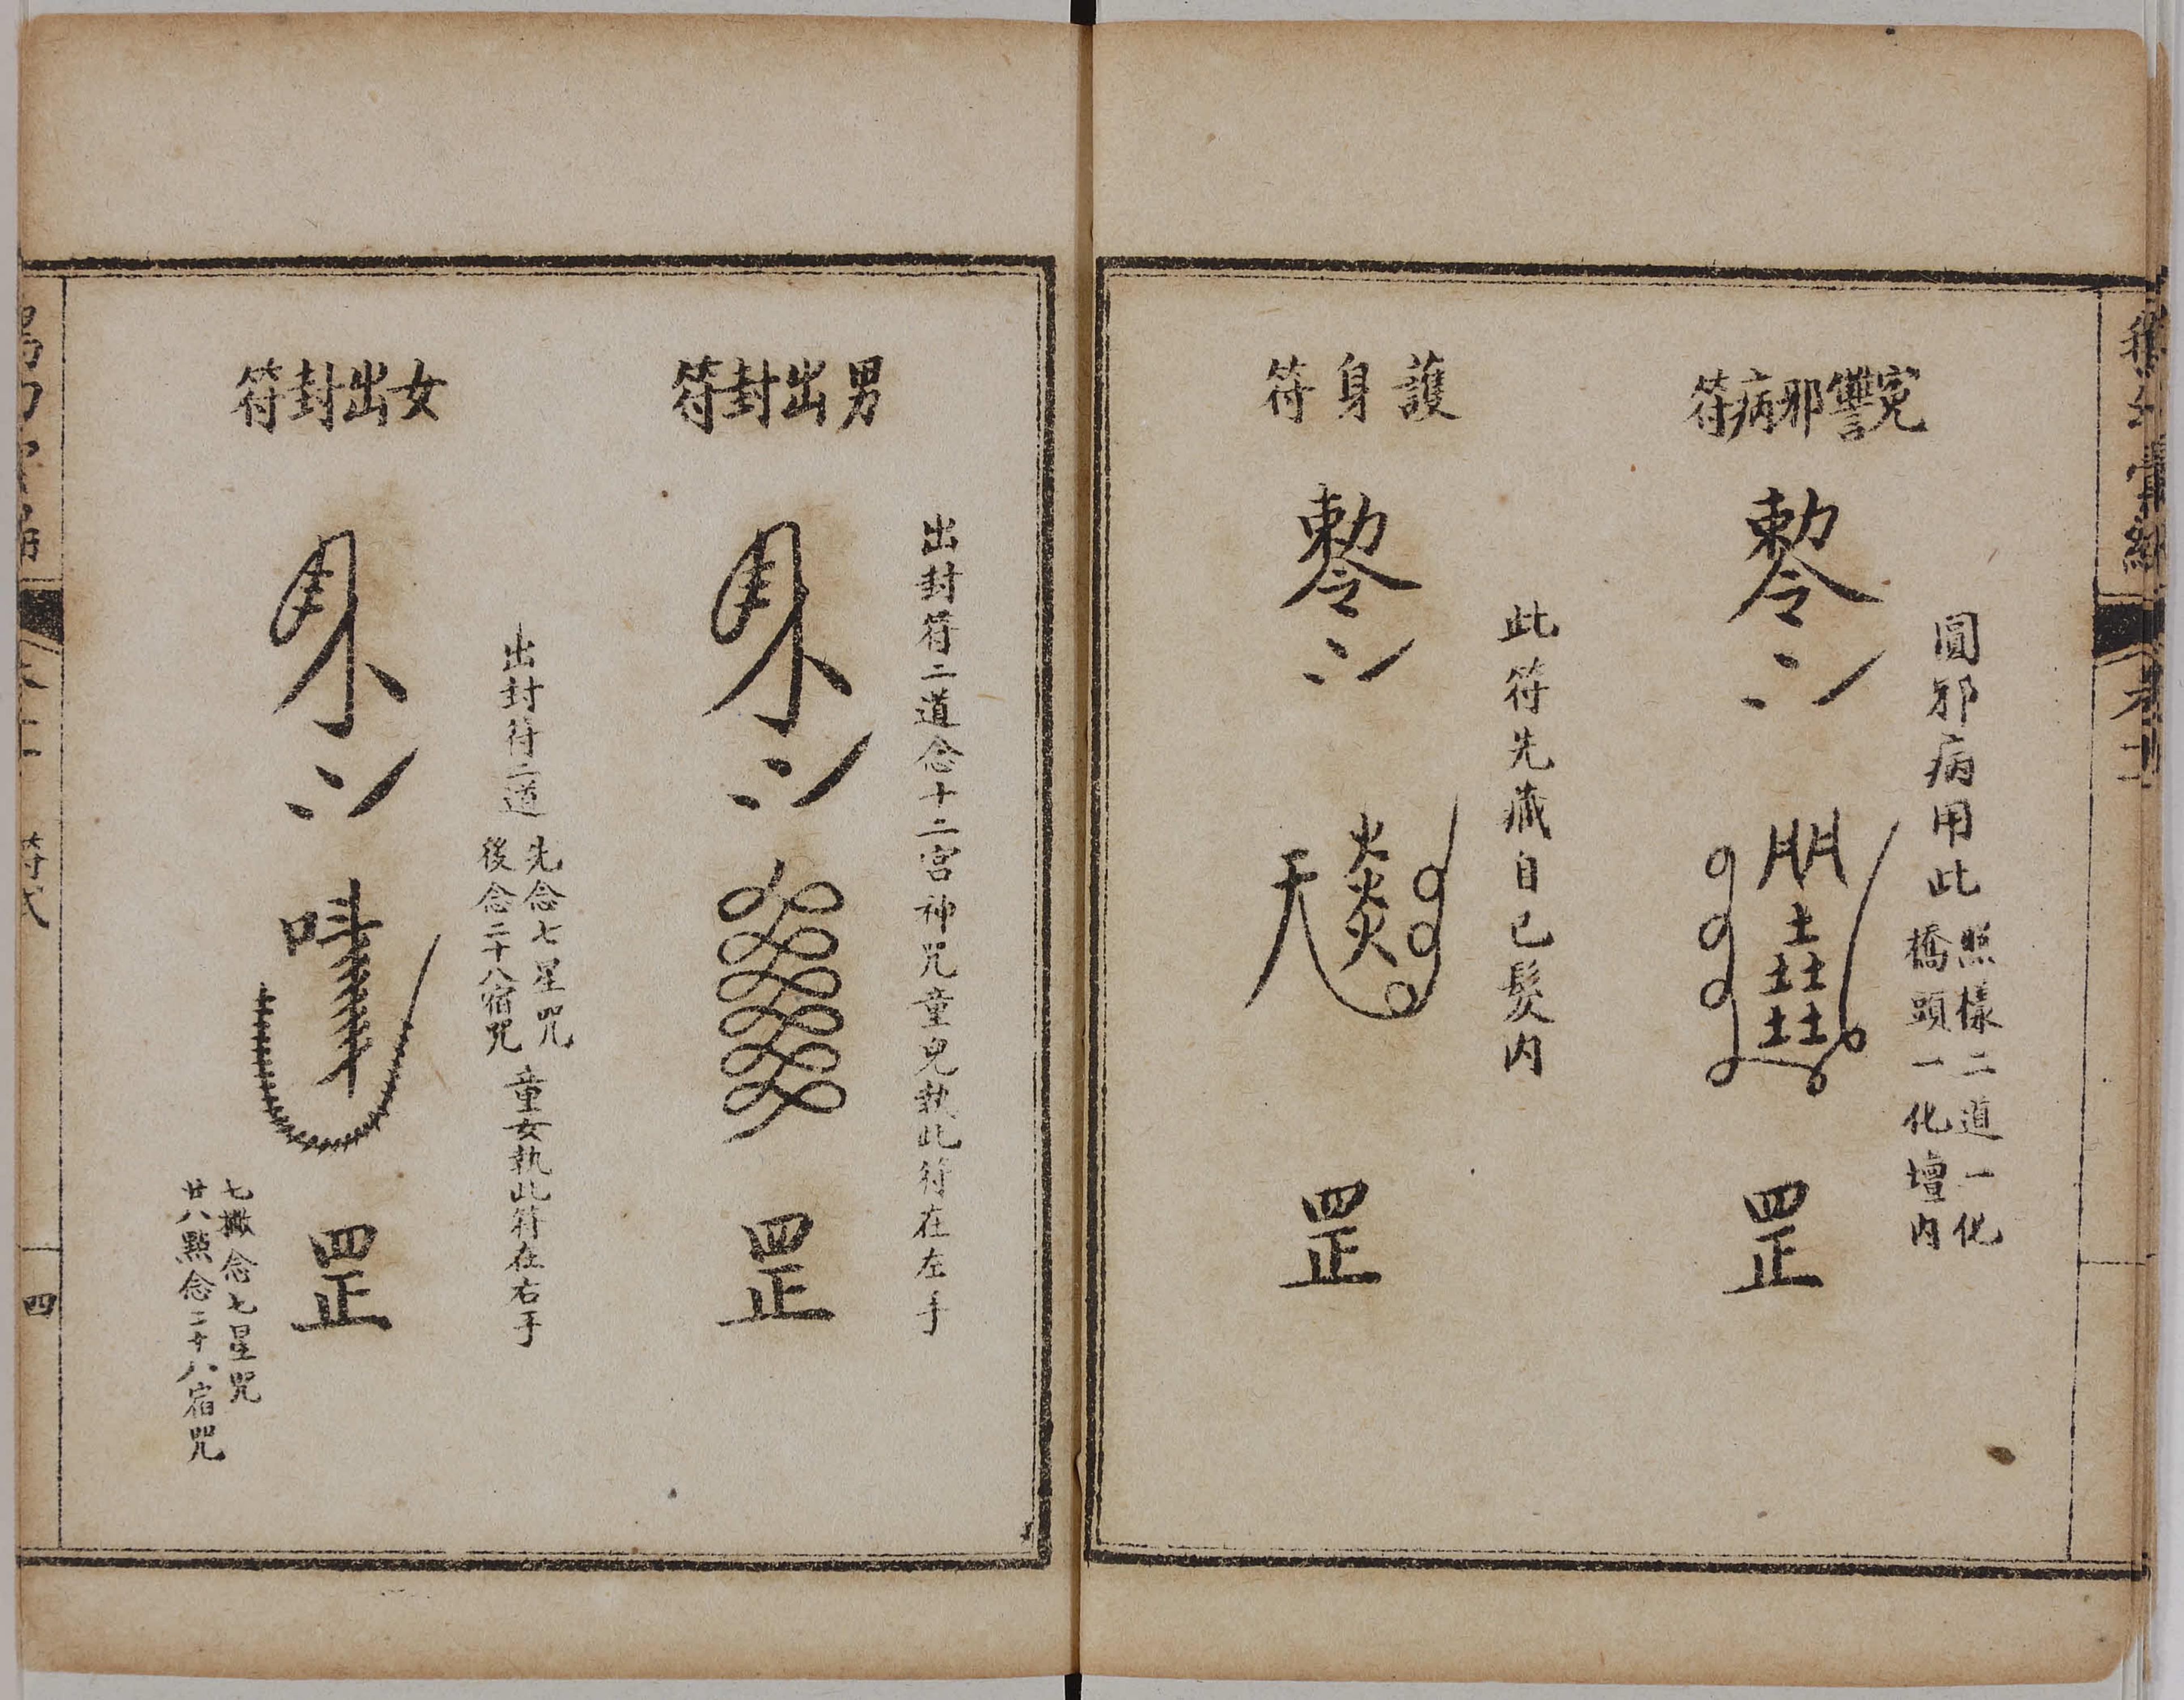 卷二
冤讐邪病符
圓邪病用此
照樣二道一化
橋頭一化壇内
勅令
罡
護身符
此符先藏自已髮内
勅令
罡
男出封符
出封符二道念十二宮神咒童兒執此符在左手
罡
女出封符
出封符二道
先念七星咒
後念二十八宿咒
童女執此符在右手
罡
七撇念七星咒
廿八點念二十八宿咒
符式
四